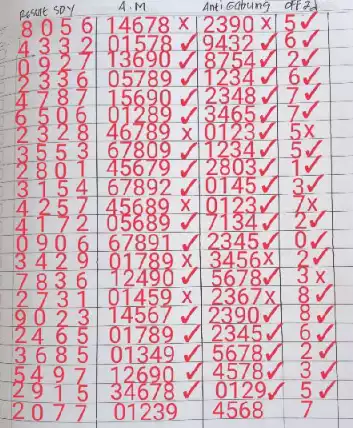 Result SDY A.M Anti Gabung off 2d
8056 14678 x 2390 x 5 ✓
4332 01578 ✓ 9432 ✓ 6 ✓
0927 13690 ✓ 8754 ✓ 2 ✓
2336 05789 ✓ 1234 ✓ 6 ✓
4787 15690 ✓ 2348 ✓ 7 ✓
6506 01289 ✓ 3465 ✓ 7 ✓
2328 46789 x 0123 ✓ 5 x
3553 67809 ✓ 1234 ✓ 5 ✓
2801 45679 ✓ 2803 ✓ 1 ✓
3154 67892 ✓ 0145 ✓ 3 ✓
4257 45689 x 0123 ✓ 7 x
4172 05689 ✓ 7134 ✓ 2 ✓
0906 67891 ✓ 2345 ✓ 0 ✓
3429 01789 x 3456 x 2 ✓
7836 12490 ✓ 5678 ✓ 3 x
2731 01459 x 2367 x 8 ✓
9023 14567 ✓ 2390 ✓ 8 ✓
2465 01789 ✓ 2345 ✓ 6 ✓
3685 01349 ✓ 5678 ✓ 2 ✓
5497 12690 ✓ 4578 ✓ 3 ✓
2915 34678 ✓ 0129 ✓ 5 ✓
2077 01239 4568 7